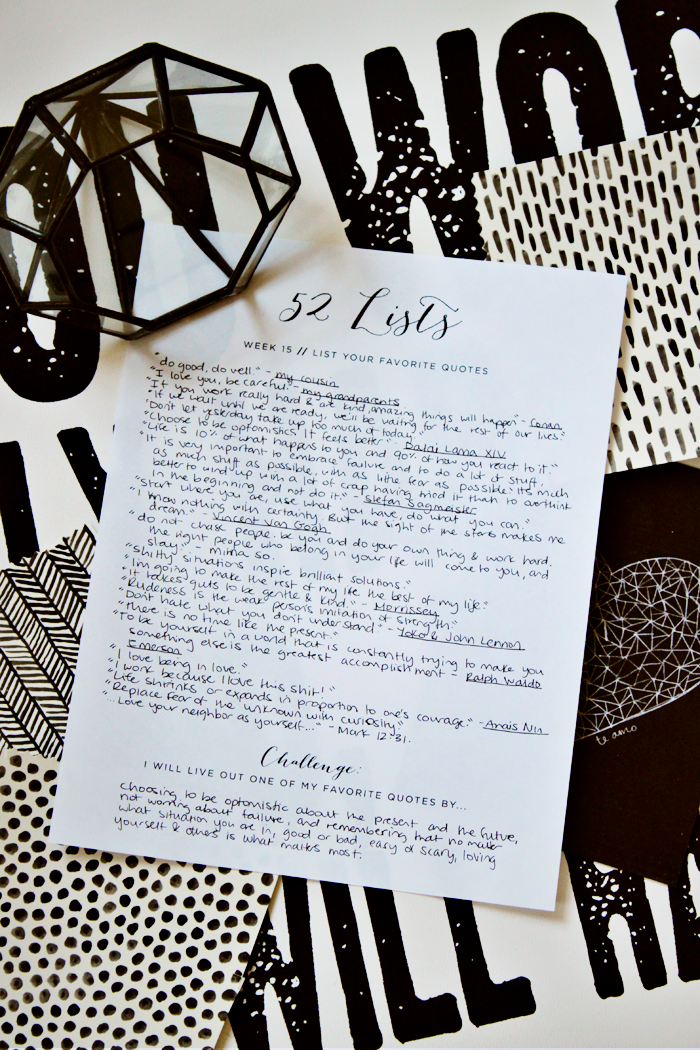 WOR
52 Lists
WEEK 15 // LIST YOUR FAVORITE QUOTES
"do good, do well." - my cousin
"I love you, be careful." - my grandparents
"If you work really hard & are kind, amazing things will happen" - Conan
"If we wait until we are ready, we'll be waiting for the rest of our lives."
"Don't let yesterday take up too much of today."
"Choose to be optimistics It feels better" - Dalai Lama XIV
"Life is 10% of what happens to you and 90% of how you react to it."
"It is very important to embrace failure and to do a lot of stuff,
as much stuff as possible, with as little fear as possible. It's much
better to wind up with a lot of crap having tried it than to overthink
in the beginning and not do it." - Stefan Sagmeister
"Start where you are, use what you have, do what you can."
"I know nothing with certainty, But the sight of the stars makes me
dream." - Vincent Van Gogh
"do not chase people. be you and do your own thing & work hard.
the right people who belong in your life will come to you, and
stay." - mima so.
"shitty situations inspire brilliant solutions."
"I'm going to make the rest of my life the best of my life."
"It takes guts to be gentle & kind." - Morrissey
"Rudeness is the weak person's imitation of strength."
"Don't hate what you don't understand." - Yoko & John Lennon
"there is no time like the present."
"To be yourself in a world that is constantly trying to make you
something else is the greatest accomplishment - Ralph Waldo
Emerson
"I love being in love."
"I work because I love this shit!"
"Life shrinks or expands in proportion to one's courage." - Anais Nin
"Replace fear of the unknown with curiosity."
"...Love your neighbor as yourself..." - Mark 12:31.
Challenge:
I WILL LIVE OUT ONE OF MY FAVORITE QUOTES BY...
choosing to be optomistic about the present and the future,
not worring about failure, and remembering that no matter
what situation you are in, good or bad, easy or scary, loving
yourself & others is what matters most.
te amo